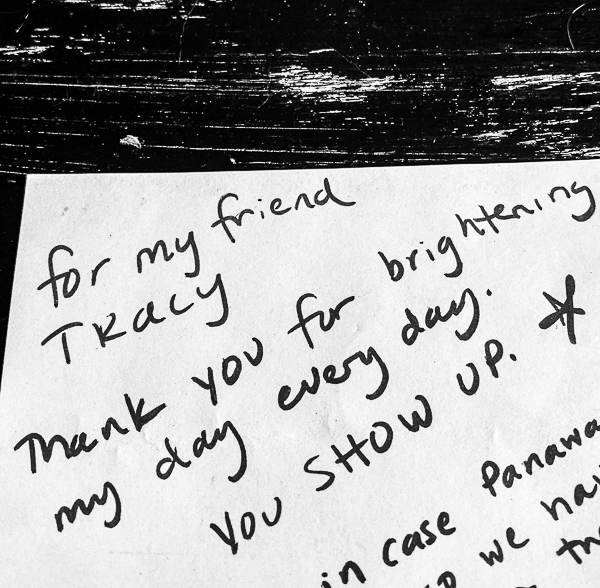 for my friend
TRacy
Thank you for brightening
my day every day.
you SHOW UP.
in case
we